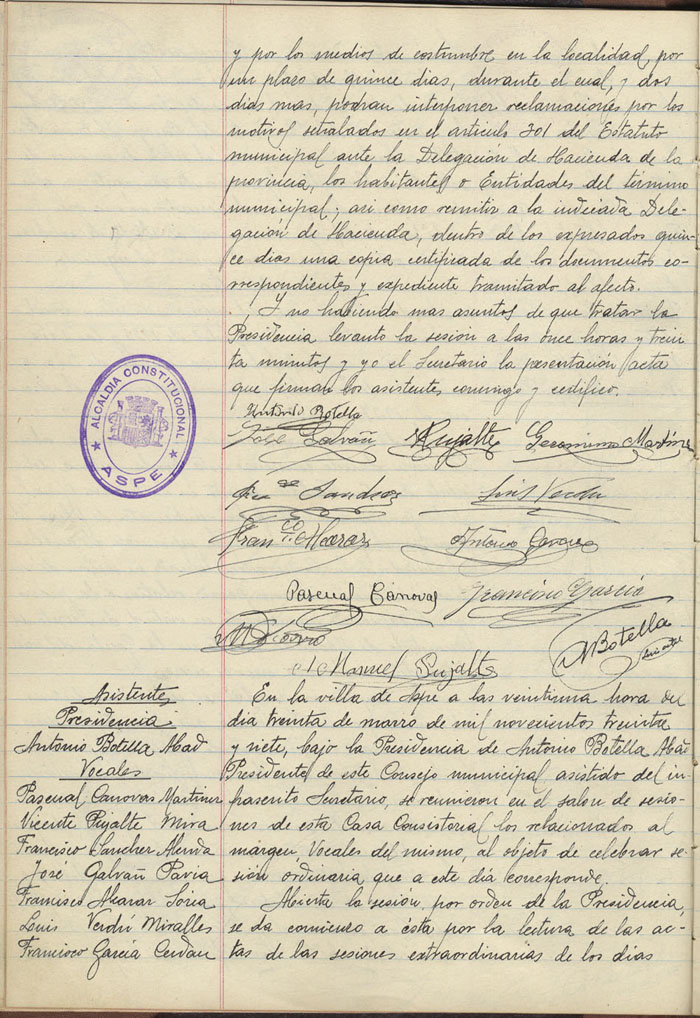 y por los medios de costumbre en la localidad, por
un plazo de quince dias, durante el cual, y dos
dias mas, podran interponer reclamaciones por los
motivos señalados en el articulo 301 del Estatuto
municipal ante la Delegación de Hacienda de la
provincia, los habitantes o Entidades del término
municipal; asi como remitir a la indicada Dele-
gación de Hacienda, dentro de los expresados quin-
ce dias una copia certificada de los documentos co-
rrespondientes y expediente tramitado al efecto.
Y no habiendo mas asuntos de que tratar la
Presidencia levanto la sesión a las once horas y trein
ta minutos y yo el Secretario la presentación acta
que firman los asistentes conmigo y certifico.
ALCALDIA CONSTITUCIONAL
ASPE
Antonio Botella
José Galvañ Pujalte Geronimo Martinez
Luis Verdu
Fran.co Alcaraz Antonio
Pascual Canovas Francisco García
A Botella
Manuel Pujalte
Asistentes
Presidencia
Antonio Botella Abad
Vocales
Pascual Canovas Martinez
Vicente Pujalte Mira
Francisco Sanchez
José Galvañ Pavia
Francisco Alcaraz Soria
Luis Verdú Miralles
Francisco García Cerdan
En la villa de Aspe a las veintiuna hora del
dia treinta de marzo de mil novecientos treinta
y siete, bajo la Presidencia de Antonio Botella Abad
Presidente de este Consejo municipal asistido del in-
frascrito Secretario, se reunieron en el salon de sesio-
nes de esta Casa Consistorial los relacionados al
margen, Vocales del mismo, al objeto de celebrar se-
sión ordinaria que a este día corresponde.
Abierta la sesión por orden de la Presidencia,
se da comienzo a ésta por la lectura de las ac-
tas de las sesiones extraordinarias de los dias